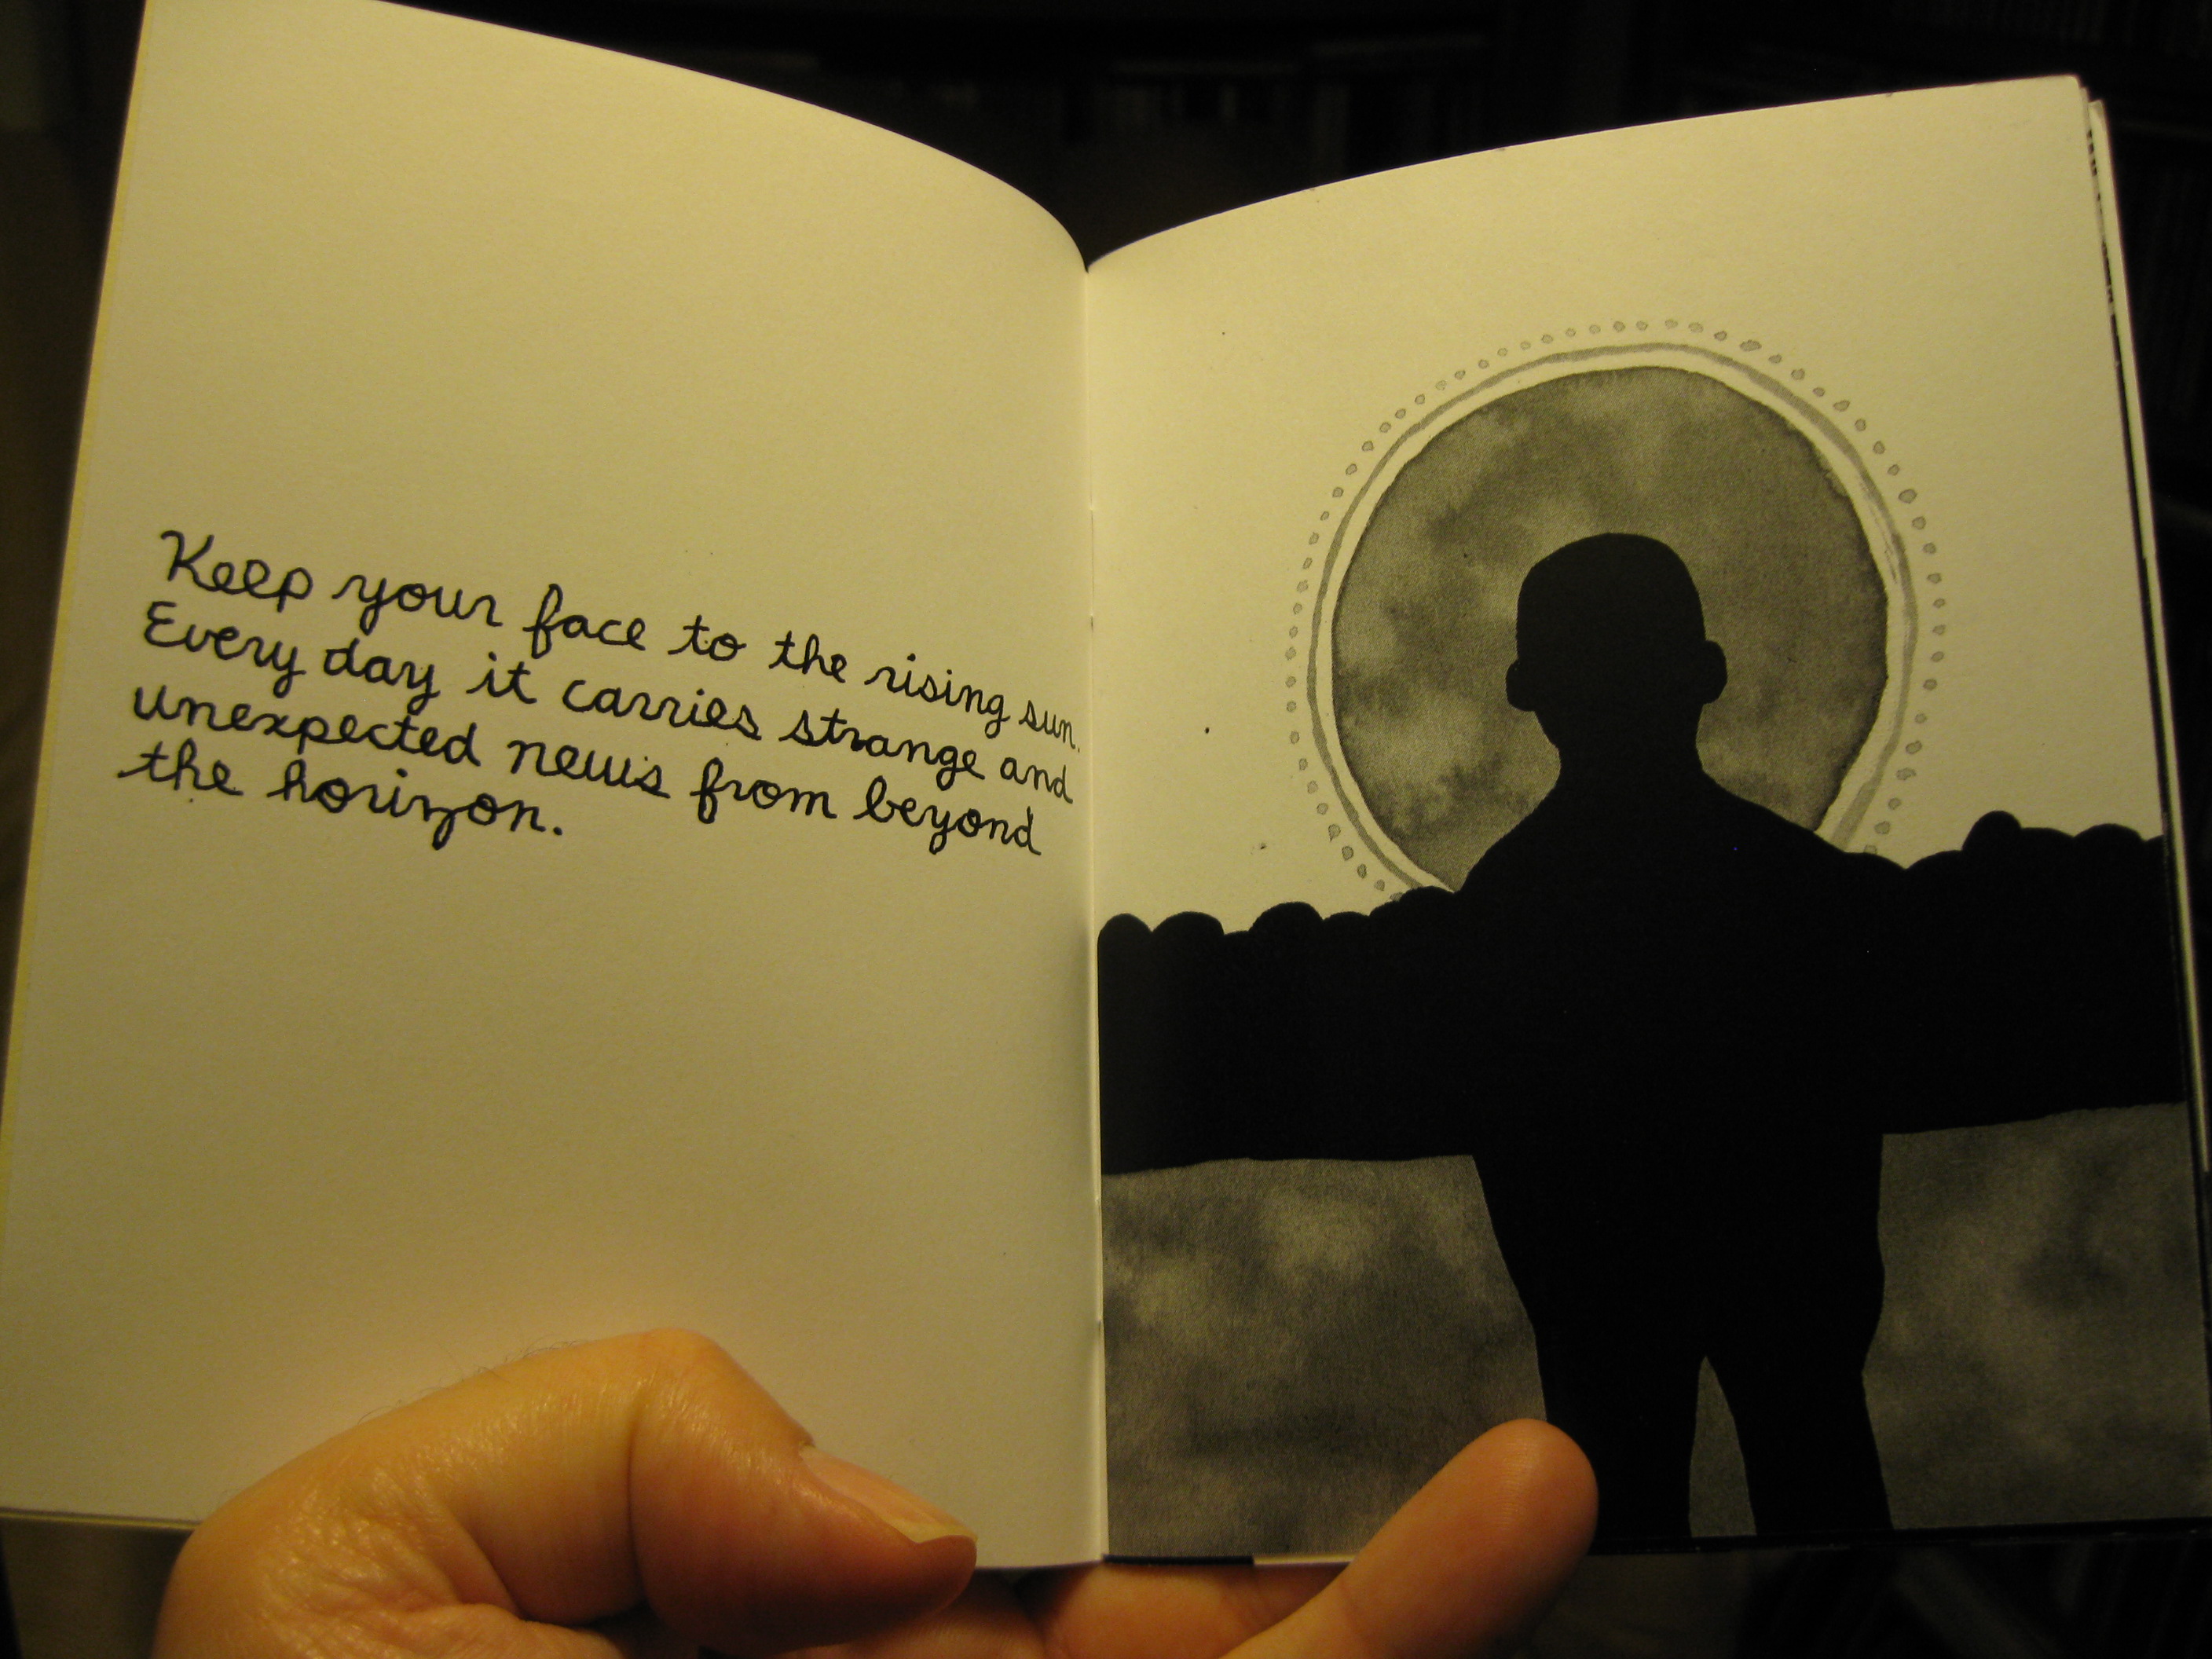 Keep your face to the rising sun.
Every day it carries strange and
unexpected news from beyond
the horizon.